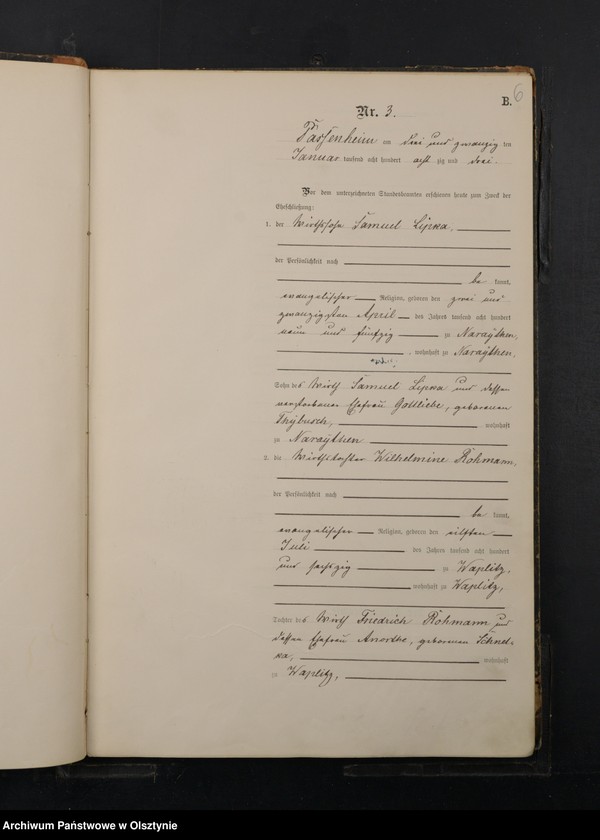 B.
6
Nr. 3.
Passenheim am drei und zwanzig ten
Januar tausend acht hundert acht zig und drei.
Vor dem unterzeichneten Standesbeamten erschienen heute zum Zweck der
Eheschließung:
1. der Wirthssohn Samuel Lipka,
der Persönlichkeit nach
be kannt,
evangelischer Religion, geboren den zwei und
zwanzigsten April des Jahres tausend acht hundert
neun und fünfzig zu Narаythen,
, wohnhaft zu Naraythen,
Sohn des Wirth Samuel Lipka und dessen
verstorbener Ehefrau Gottliebe, geborenen
wohnhaft
zu Naraythen
2. die Wirthstochter Wilhelmine Rohmann,
der Persönlichkeit nach
be kannt,
evangelischer Religion, geboren den eilften
Juli des Jahres tausend acht hundert
und sechszig zu Waplitz,
wohnhaft zu Waplitz,
Tochter des Wirth Friedrich Rohmann und
dessen Ehefrau geborenen
wohnhaft
zu Waplitz,
Archiwum Państwowe w Olsztynie